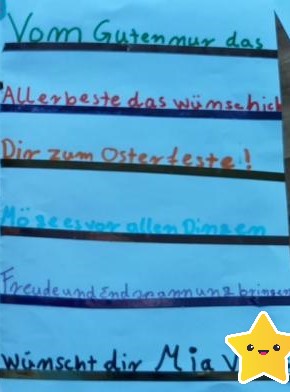 Vom Guten nur das
Allerbeste das wünsch ich
Dir zum Osterfeste!
Möge es vor allen Dingen
Freude und Endspannung bringen
wünscht dir Mia V